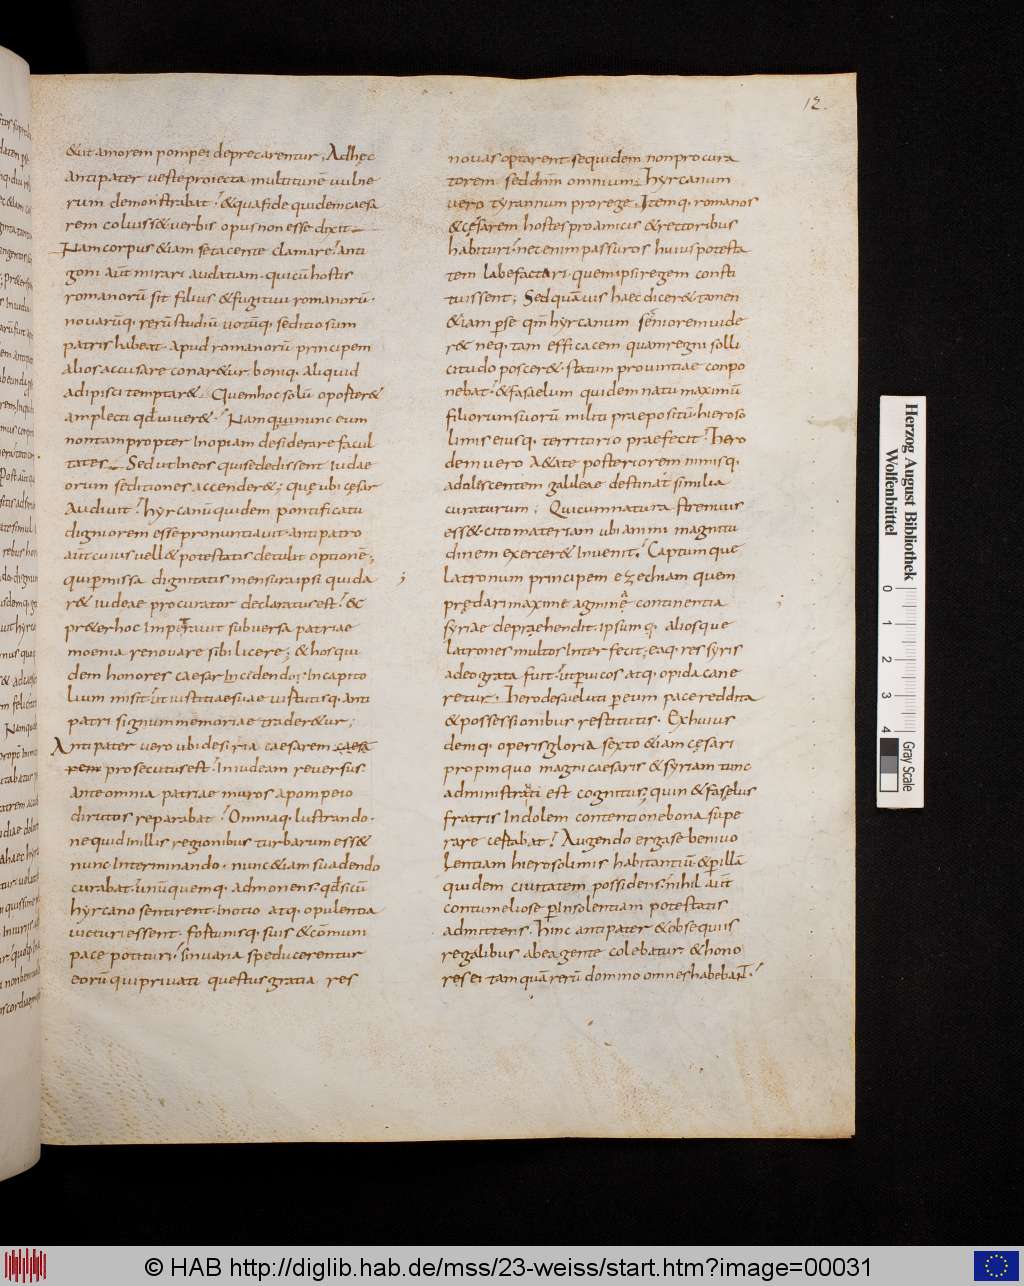 12.
&ut amorem pompei deprecarentur; Adhęc
antipater veste proiecta multitunē vulne
rum demonstrabat; & qua fide quidem caesa
rem coluiss& verbis opus non esse dixit
Nam corpus &iam se tacente clamare; anti
goni aūt mirari audatiam. qui cū hostis
romanorū sit filius & fugitiui romanorū.
novarūq. rerū studiū votūq. seditiosum
patris habeat. apud romanorū principem
alios accusare conar&ur. boniq. aliquid
adipisci temptar&. Quem hoc solū oport&
amplecti qđ viuer&; Nam qui nunc eum
non tam propter Inopiam desiderare facul
tates. Sed ut In eos qui se dedissent iudae
orum seditiones accender&; quę ubi cęsar
Audiuit; hyrcanū quidem pontificatu
digniorem esse pronuntiauit. antipatro
aūt cuius vell& potestatis detulit optionē;
qui permissa dignitatis mensura ipsi qui da
r& iudeae procurator declaratus est; &
pr&erhoc Imperauit subuersa patriae
moenia renovare sibi licere; & hos qui
dem honores caesar Incidendos In capito
lium misit; ut iustitiae suae virtutisq. anti
patri signum memoriae trader&ur;
Antipater vero ubi de siria caesarem caesa
rem prosecutus est; In iudeam reversus
ante omnia patriae muros a pompeio
dirutos reparabat; Omniaq. lustrando.
ne quid In illis regionibus turbarum ess&
nunc Interminando. nunc &iam suadendo
curabat; unūquemq. admonens. qđ si cū
hyrcano sentirent. In otio atq. opulentia
victuri essent. fortunisq. suis & cōmuni
pace potituri; sin vana spe ducerentur
eorū qui privati questus gratia res
novas optarent se quidem non procura
torem sed dnm omnium; hyrcanum
vero tyrannum pro rege. Itemq. romanos
& cęsarem hostes pro amicis & rectoribus
habituri; nec enim passuros huius potesta
tem labefactari. quem ipsi regem consti
tuissent; Sed quāvis haec dicer& tamen
&iam per se qm hyrcanum seniorem vide
r& neq. tam efficacem quam regni solli
citudo poscer&. statum provintiae conpo
nebat; & fasaelum quidem natu maximū
filiorum suorū militi praepositū. hieroso
limis eiusq. territorio praefecit; hero
dem vero A&ate posteriorem nimisq.
adolescentem galileae destinat similia
curaturum; Qui cum natura strenuus
ess& cito materiam ubi animi magnitu
dinem exercer& Invenit; Captumque
latronum principem ezechiam quem
prędari maxime agmine continentia
syriae depraehendit. ipsumq. aliosque
latrones multos Interfecit; eaq. res syris
adeo grata fuit. ut per vicos atq. opida cane
retur. herodes veluti per eum pace reddita
& possessionibus restitutis. Ex huius
demq. operis gloria sexto &iam cęsari
propinquo magni caesaris & syriam tunc
administrati est cognitus; quin & fasęlus
fratris Indolem contentione bona supe
rare certabat; Augendo erga se benivo
lentiam hierosolimis habitantiū. & per illā
quidem civitatem possidens. nihil aūt
contumeliose per Insolentiam potestatis
admittens. hinc antipater & obsequiis
regalibus abea gente colebatur & hono
res ei tam quā rerū domino omnes habebant;
Herzog August Bibliothek
Wolfenbüttel
0 1 2 3 4
Gray Scale
© HAB http://diglib.hab.de/mss/23-weiss/start.htm?image=00031